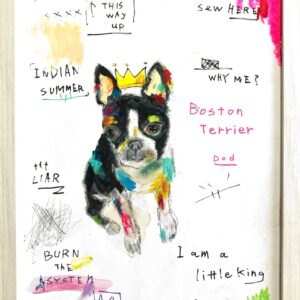 THIS
WAY
UP
SEW HERE
INDIAN
SUMMER
WHY ME?
Boston
Terrier
Dod
LIAR
BURN
THE
SYSTEM
I am a
little King